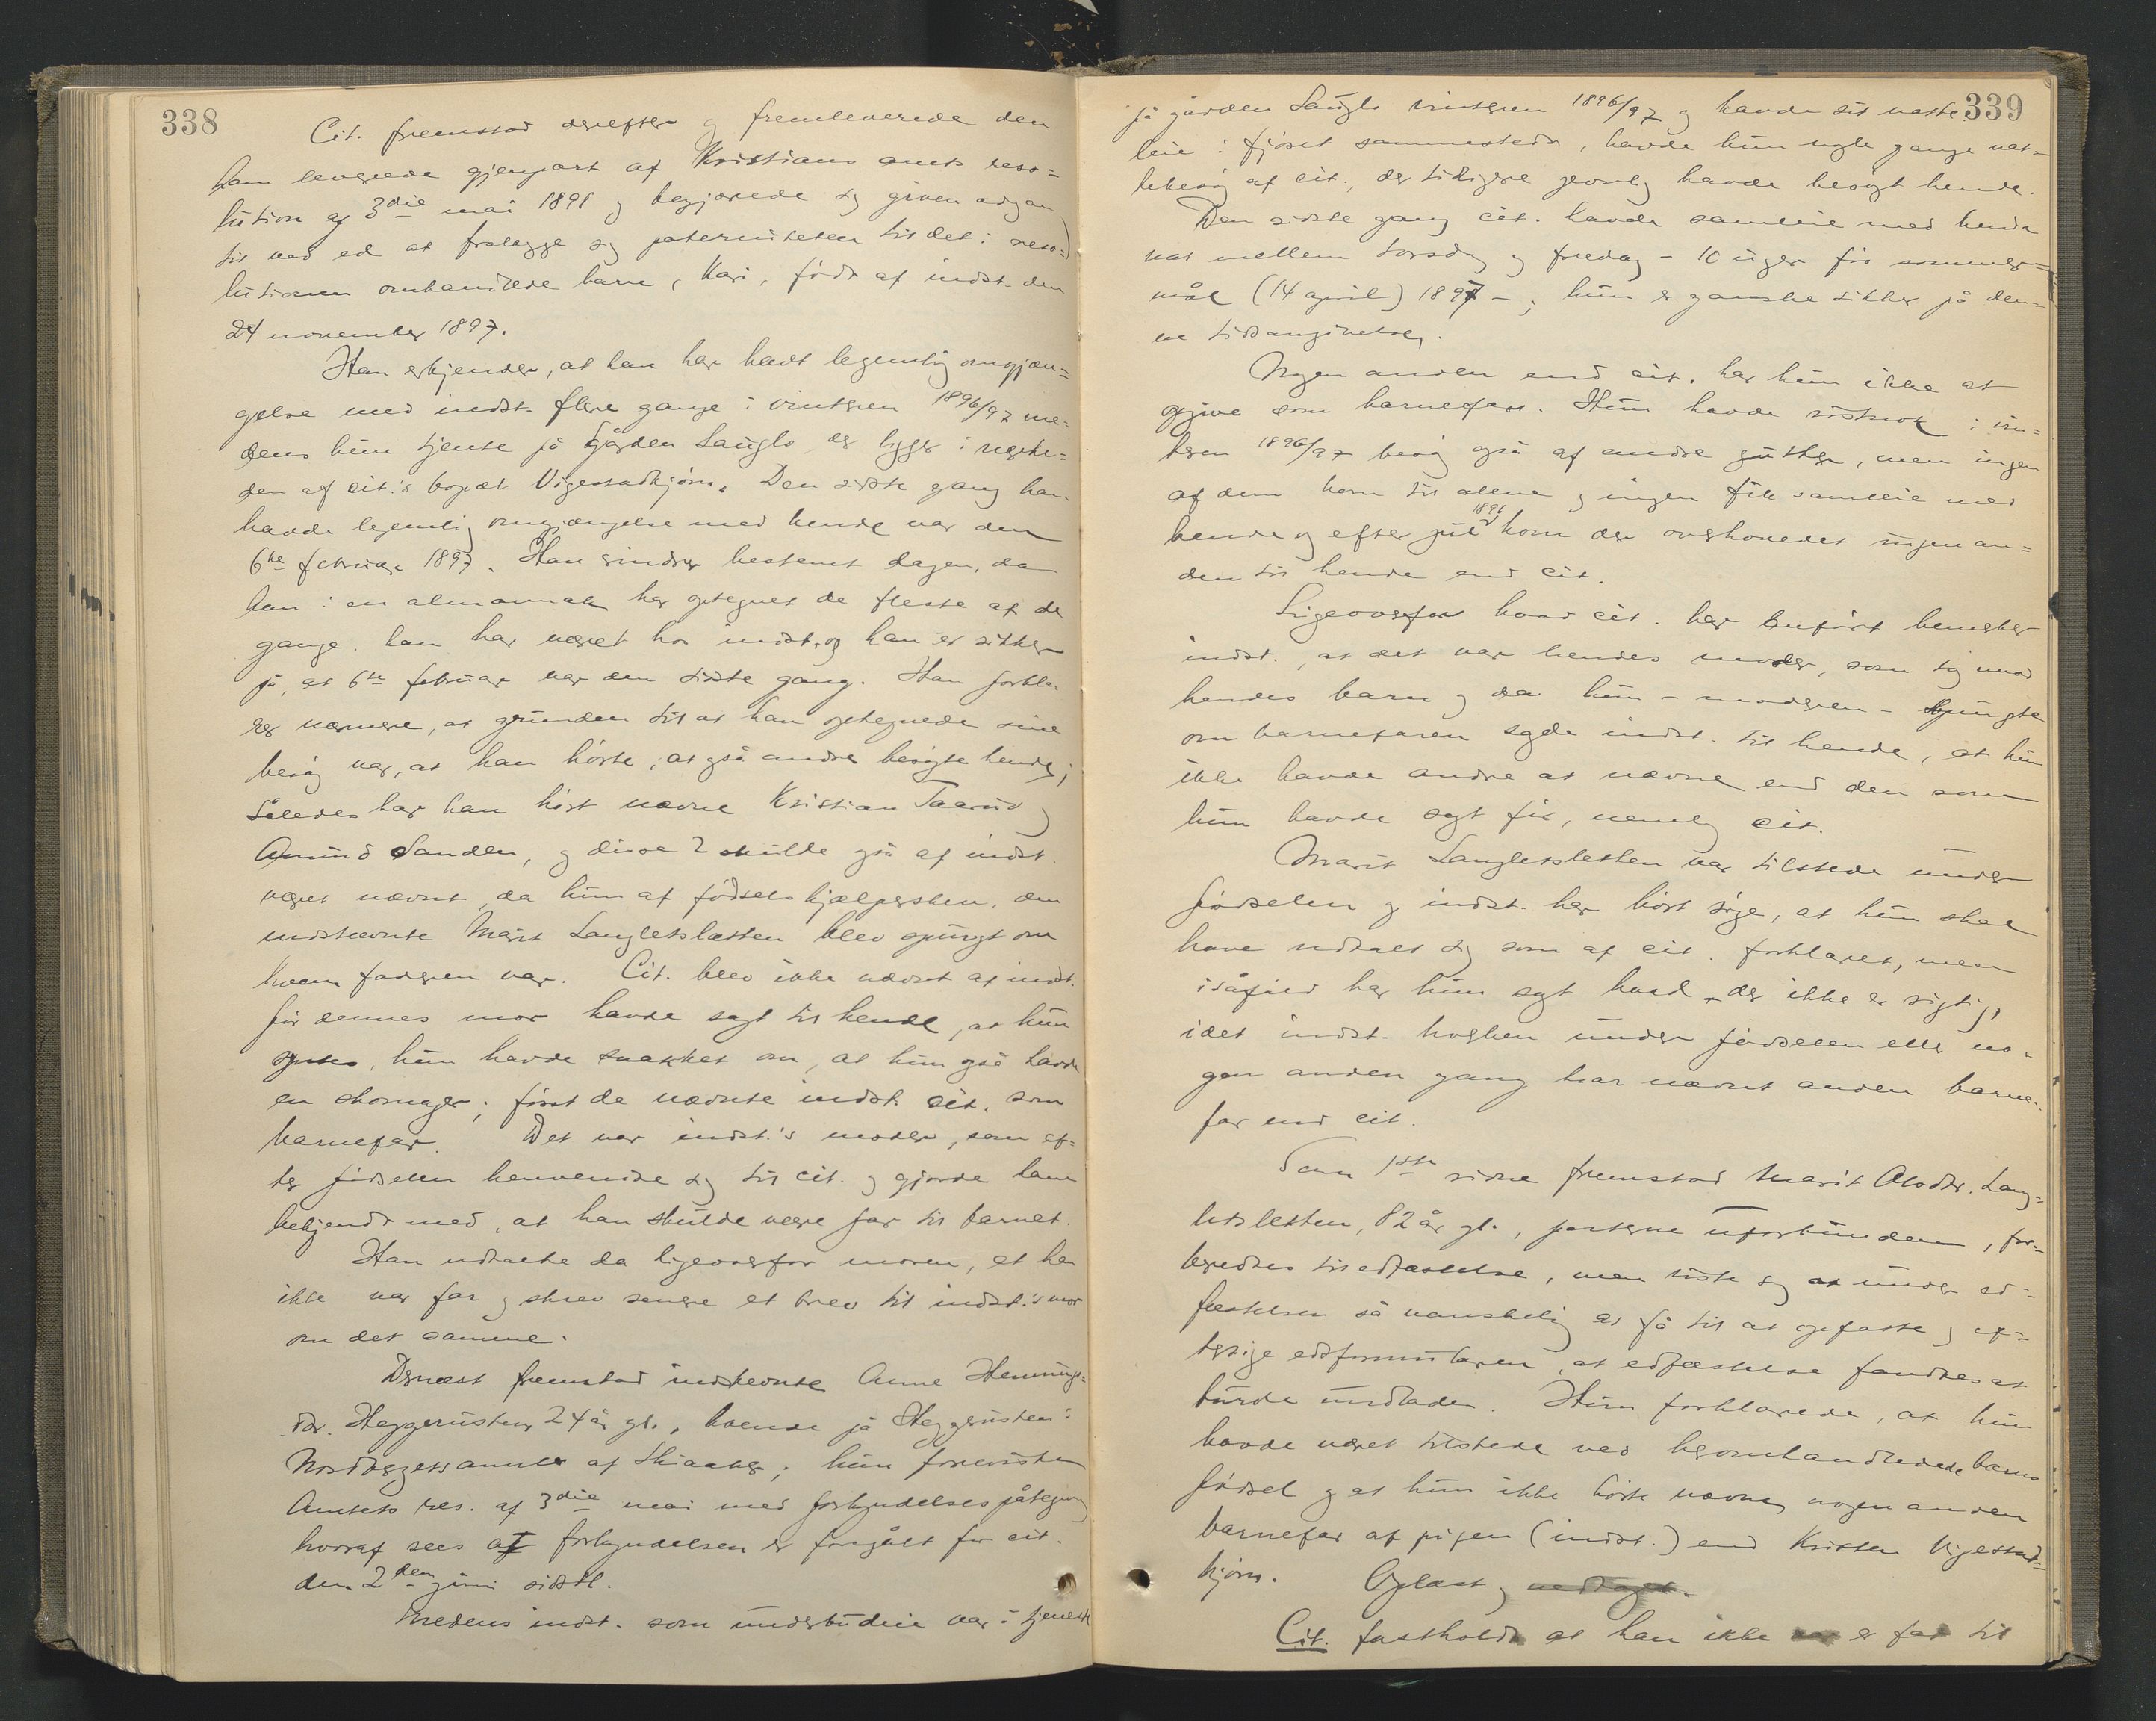 338
Cit. fremstod derefter og fremleverede den
ham leverede gjenpart af Kristians amts reso=
lution af 3die mai 1898 og begjærede sig given adgang
til ved ed at fralægge sig paterniteten til det i reso=
lutionen omhandlede barn, Kari, født af indst. den
24 november 1897.
Han erkjender, at han har havt legemlig omgjæn=
gelse med indst. flere gange i vinteren 1896/97 me=
dens hun tjente på gården Sauglo der ligger i nærhe=
den af cit.'s bopæl Vigestadkjørn. Den sidste gang han
havde legemlig omgjængelse med hende var den
6te februar 1897. Han erindrer bestemt dagen, da
han i en almannak har optegnet de fleste af de
gange, han har været hos indst. og han er sikker
på, at 6te februar var den sidste gang. Han forkla=
rer nærmere, at grunden til at han optegnede sine
besøg var, at han hørte, at også andre besøgte hende;
således har han hørt nævne Kristian Taarud og
Amund Sanden, og disse 2 skulle også af indst.
været nævnt, da hun af fødselshjælpersken, den
indstevnte Marit Langletsletten blev spurgt om
hvem faderen var. Cit. blev ikke nævnt af indst.
før dennes mor havde sagt til hende, at hun
syntes, hun havde snakket om, at hun også havde
en skomager; først da nævnte indst. cit. som
barnefar. Det var indst.'s moder, som ef=
ter fødselen henvendte sig til cit. og gjorde ham
bekjendt med, at han skulde være far til barnet.
Han udtalte da ligeoverfor moren, at han
ikke var far og skrev senere et brev til indst.'s mor
om det samme.
Dernæst fremstod indstevnte Anne Hennings=
dtr. Heggerusten, 24 år gl., boende på Heggerusten i
Nordbergs annex af Skiaaker; hun foreviste
Amtets res. af 3die mai med forkyndelsespåtegning
hvoraf sees at forkyndelsen er foregået for cit.
den 2den juni sidstl.
Medens indst. som underbudeie var i tjeneste
339
på gården Sauglo vinteren 1896/97 og havde sit natte=
leie i fjøset sammesteds, havde hun nogle gange nat=
tebesøg af cit., der tidligere jevnlig havde besøgt hende.
Den sidste gang cit. havde samleie med hende
nat mellem torsdag og fredag - 10 uger før sommer=
mål (14 april) 1897 -; hun er ganske sikker på den=
ne tidsangivelse.
Nogen anden end cit. har hun ikke at
opgive som barnefar. Hun havde vistnok i vin=
teren 1896/97 besøg også af andre gutter, men ingen
af dem kom til alene og ingen fik samleie med
hende og efter jul 1896 kom der overhovedet ingen an=
den til hende end cit.
Ligeoverfor hvad cit. har anført bemerker
indst., at det var hendes moder, som tog mod
hendes barn og da hun - moderen - spurgte
om barnefaren sagde indst. til hende, at hun
ikke havde andre at nævne end den som
hun havde sagt før, nemlig cit.
Marit Langletsletten var tilstede under
fødselen og indst. har hørt sige, at hun skal
have udtalt sig som af cit. forklaret, men
isåfald har hun sagt hvad der ikke er rigtig,
idet indst. hverken under fødselen eller no=
gen anden gang har nævnt anden barne=
far end cit.
Som 1ste vidne fremstod Marit Olsdtr. Lang=
letsletten, 82 år gl., parterne uforbunden, for=
beredtes til edfæstelse, men viste sig at under ed=
fæstelsen så vanskelig at få til at opfatte og ef=
tersige edsformularen, at edfæstelse fandtes at
burde undlades. Hun forklarede, at hun
havde været tilstede ved heromhandlede barns
fødsel og at hun ikke hørte nævne nogen anden
barnefar af pigen (indst.) end Kristen Vigestad=
kjørn. Oplæst og vedtaget.
Cit. fastholdt at han ikke er far til